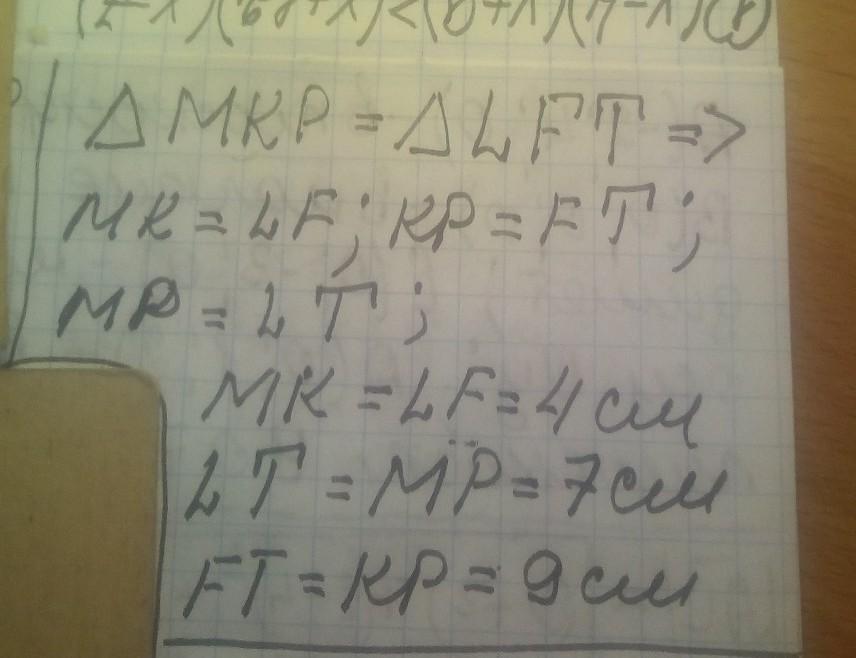 Δ MKP = Δ LFT =>
MK = LF; KP = FT;
MP = LT;
MK = LF = 4 см
LT = MP = 7 см
FT = KP = 9 см